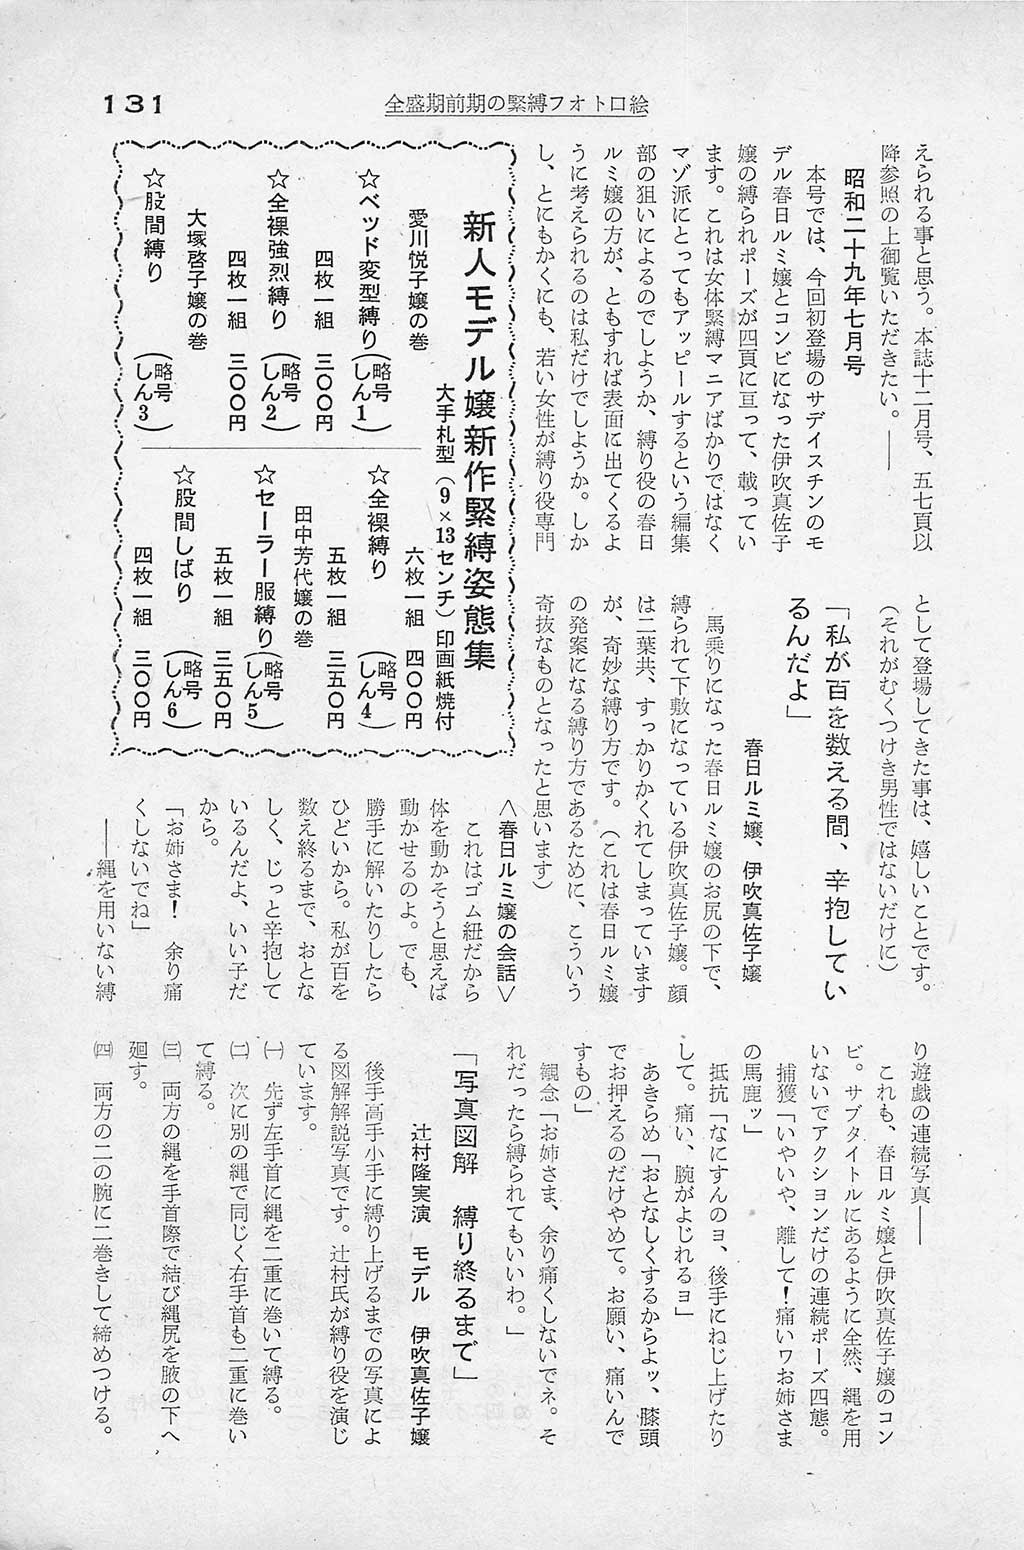 131
全盛期前期の緊縛フオト口絵
えられる事と思う。本誌十二月号、五七頁以
降参照の上御覧いただきたい。――
昭和二十九年七月号
本号では、今回初登場のサデイスチンのモ
デル春日ルミ嬢とコンビになった伊吹真佐子
嬢の縛られポーズが四頁に亘って、載ってい
ます。これは女体緊縛マニアばかりではなく
マゾ派にとってもアッピールするという編集
部の狙いによるのでしようか、縛り役の春日
ルミ嬢の方が、ともすれば表面に出てくるよ
うに考えられるのは私だけでしようか。しか
し、とにもかくにも、若い女性が縛り役専門
として登場してきた事は、嬉しいことです。
（それがむくつけき男性ではないだけに）
「私が百を数える間、辛抱してい
るんだよ」
春日ルミ嬢、伊吹真佐子嬢
馬乗りになった春日ルミ嬢のお尻の下で、
縛られて下敷になっている伊吹真佐子嬢。顔
は二葉共、すっかりかくれてしまっています
が、奇妙な縛り方です。（これは春日ルミ嬢
の発案になる縛り方であるために、こういう
奇抜なものとなったと思います）
＜春日ルミ嬢の会話＞
これはゴム紐だから
体を動かそうと思えば
動かせるのよ。でも、
勝手に解いたりしたら
ひどいから。私が百を
数え終るまで、おとな
しく、じっと辛抱して
いるんだよ、いい子だ
から。
「お姉さま！　余り痛
くしないでね」
――縄を用いない縛
り遊戯の連続写真――
これも、春日ルミ嬢と伊吹真佐子嬢のコン
ビ。サブタイトルにあるように全然、縄を用
いないでアクションだけの連続ポーズ四態。
捕獲「いやいや、離して！痛いワお姉さま
の馬鹿ッ」
抵抗「なにすんのヨ、後手にねじ上げたり
して。痛い、腕がよじれるヨ」
あきらめ「おとなしくするからよッ、膝頭
でお押えるのだけやめて。お願い、痛いんで
すもの」
観念「お姉さま、余り痛くしないでネ。そ
れだったら縛られてもいいわ。」
「写真図解　縛り終るまで」
辻村隆実演　モデル　伊吹真佐子嬢
後手高手小手に縛り上げるまでの写真によ
る図解解説写真です。辻村氏が縛り役を演じ
ています。
㈠　先ず左手首に縄を二重に巻いて縛る。
㈡　次に別の縄で同じく右手首も二重に巻い
て縛る。
㈢　両方の縄を手首際で結び縄尻を腋の下へ
廻す。
㈣　両方の二の腕に二巻きして締めつける。
新人モデル嬢新作緊縛姿態集
大手札型（9×13センチ）印画紙焼付
愛川悦子嬢の巻
☆ベッド変型縛り（略号しん1）
四枚一組　三〇〇円
☆全裸強烈縛り（略号しん2）
四枚一組　三〇〇円
大塚啓子嬢の巻
☆股間縛り（略号しん3）
六枚一組　四〇〇円
☆全裸縛り（略号しん4）
五枚一組　三五〇円
田中芳代嬢の巻
☆セーラー服縛り（略号しん5）
五枚一組　三五〇円
☆股間しばり（略号しん6）
四枚一組　三〇〇円